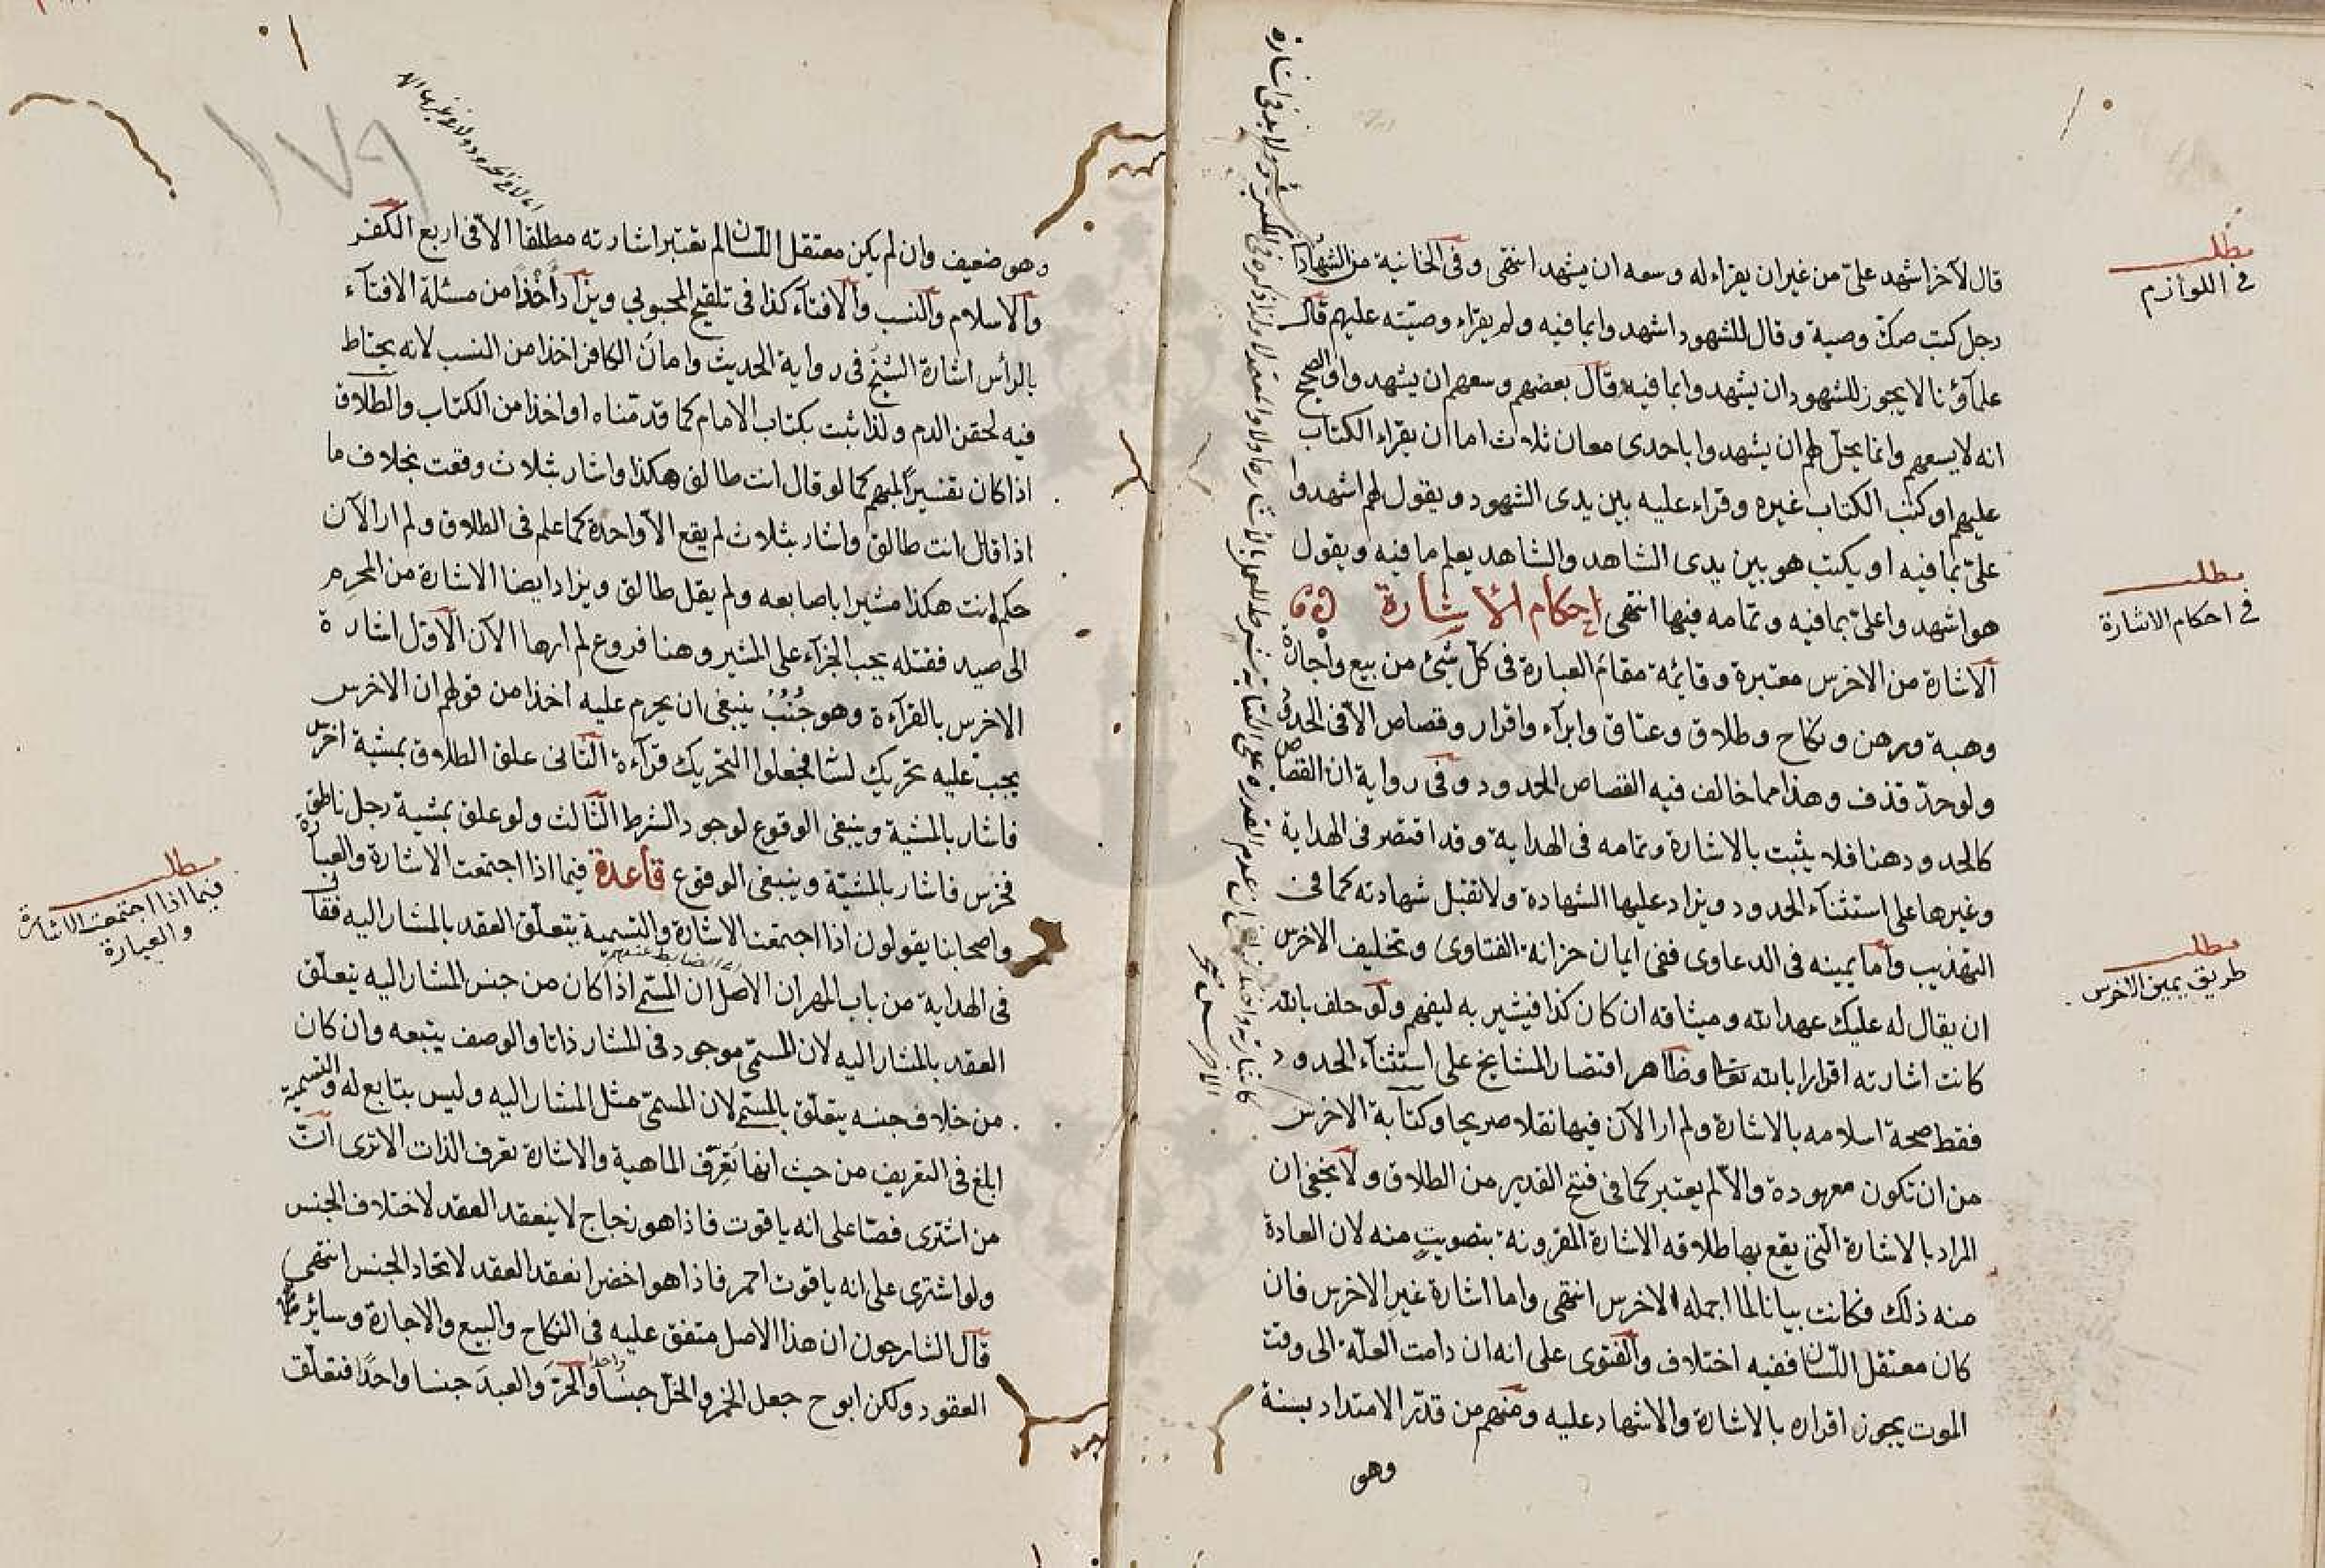 قال لآخر اشهد علىّ من غير ان يقراء له وسعه ان يشهد انتهى وفى الخانية من الشهادا
رجل كتب صك وصية وقال للشهود اشهدوا بما فيه ولم يقراء وصيته عليهم قال
علمآؤنا لا يجوز للشهود ان يشهدوا بما فيه وقال بعضهم وسعهم ان يشهدوا والصحيح
انه لا يسعهم وانما يحل لهم ان يشهدوا باحدى معان ثلاث اما ان يقراء الكتاب
عليهم او كتب الكتاب غيره وقراء عليه بين يدى الشهود ويقول لهم اشهدوا
علىّ بما فيه او يكتب هو بين يدى الشاهد والشاهد يعلم ما فيه ويقول
هو اشهدوا علىّ بما فيه وتمامه فيها انتهى احكام الأشارة
الاشارة من الاخرس معتبرة وقائمة مقام العبارة فى كل شئ من بيع واجارة
وهبة ورهن ونكاح وطلاق وعتاق وابرآء واقرار وقصاص الا فى الحدود
ولو حدّ قذف وهذا مما خالف فيه القصاص الحدود وفى رواية ان القصاص
كالحدود هنا فلا يثبت بالاشارة وتمامه فى الهداية وقد اقتصر فى الهداية
وغيرها على استثنآء الحدود ويزاد عليها الشهادة ولا تقبل شهادته كما فى
التهذيب وأما يمينه فى الدعاوى ففى ايمان خزانة الفتاوى وتحليف الاخرس
ان يقال له عليك عهد الله وميثاقه ان كان كذا فيشير به ليفهم ولو حلف بالله
كانت اشارته اقرارا بالله تعا وظاهر اقتصار المشايخ على استثنآء الحدود
فقط صحة اسلامه بالاشارة ولم ار الآن فيها نقلا صريحا وكتابة الاخرس
من ان تكون معهودة والا لم يعتبر كما فى فتح القدير من الطلاق ولا يخفى ان
المراد بالاشارة التى يقع بها طلاقه الاشارة المقرونة بتصويت منه لان العادة
منه ذلك فكانت بيانا لما اجمله الاخرس انتهى واما اشارة غير الاخرس فان
كان معتقل اللسان ففيه اختلاف والفتوى على انه ان دامت العلّة الى وقت
الموت يجوز اقراره بالاشارة والاشهاد عليه ومنهم من قدّر الامتداد بسنة
وهو
مطلب
فى اللوازم
مطلب
فى احكام الاشارة
مطلب
طريق يمين الاخرس
١٧٩
وهو ضعيف وان لم يكن معتقل اللسان لم تعتبر اشارته مطلقا الا فى اربع الكفر
والاسلام والنسب والافتآء كذا فى تلقيح المحبوبي ويزاد أخذًا من مسئلة الافتآء
بالرأس اشارة الشيخ فى رواية الحديث وامان الكافر اخذا من النسب لانه يحتاط
فيه لحقن الدم ولذا ثبت بكتاب الامام كما قدمناه او اخذا من الكتاب والطلاق
اذا كان تفسيرًا لمبهم كما لو قال انت طالق هكذا واشار بثلاث وقعت بخلاف ما
اذا قال انت طالق واشار بثلاث لم يقع الا واحدة كما علم فى الطلاق ولم ار الآن
حكم انت هكذا مشيرا باصابعه ولم يقل طالق ويزاد ايضا الاشارة من المحرم
الى صيد فقتله يجب الجزآء على المشير وهنا فروع لم ارها الآن الأول اشارة
الاخرس بالقرآءة وهو جُنُبٌ ينبغى ان يحرم عليه اخذا من قولهم ان الاخرس
يجب عليه تحريك لسانه فجعلوا التحريك قرآءة الثانى علق الطلاق بمشية اخرس
فاشار بالمشية وينبغى الوقوع لوجود الشرط الثالث ولو علق بمشية رجل ناطق
فخرس فاشار بالمشيّة وينبغى الوقوع قاعدة فيما اذا اجتمعت الاشارة والعبارة
واصحابنا يقولون اذا اجتمعت الاشارة والتسمية يتعلّق العقد بالمشار اليه فقال
فى الهداية من باب المهر ان الاصل ان المسمّى اذا كان من جنس المشار اليه يتعلّق
العقد بالمشار اليه لان المسمّى موجود فى المشار ذاتا والوصف يتبعه وان كان
من خلاف جنسه يتعلّق بالمسمّى لان المسمّى مثل المشار اليه وليس بتابع له والتسمية
ابلغ فى التعريف من حيث انها تُعرّف الماهية والاشارة تعرف الذات الا ترى انّ
من اشترى فصّا على انه ياقوت فاذا هو زجاج لا ينعقد العقد لاختلاف الجنس
ولو اشترى على انه ياقوت احمر فاذا هو اخضر انعقد العقد لاتحاد الجنس انتهى
قال الشارحون ان هذا الاصل متفق عليه فى النكاح والبيع والاجارة وسائر
العقود ولكن ابو ح جعل الخمر والخلّ جنسًا واحدا والحرّ والعبد جنسا واحدًا فتعلّق
مطلب
فيما اذا اجتمعت الاشارة
والعبارة